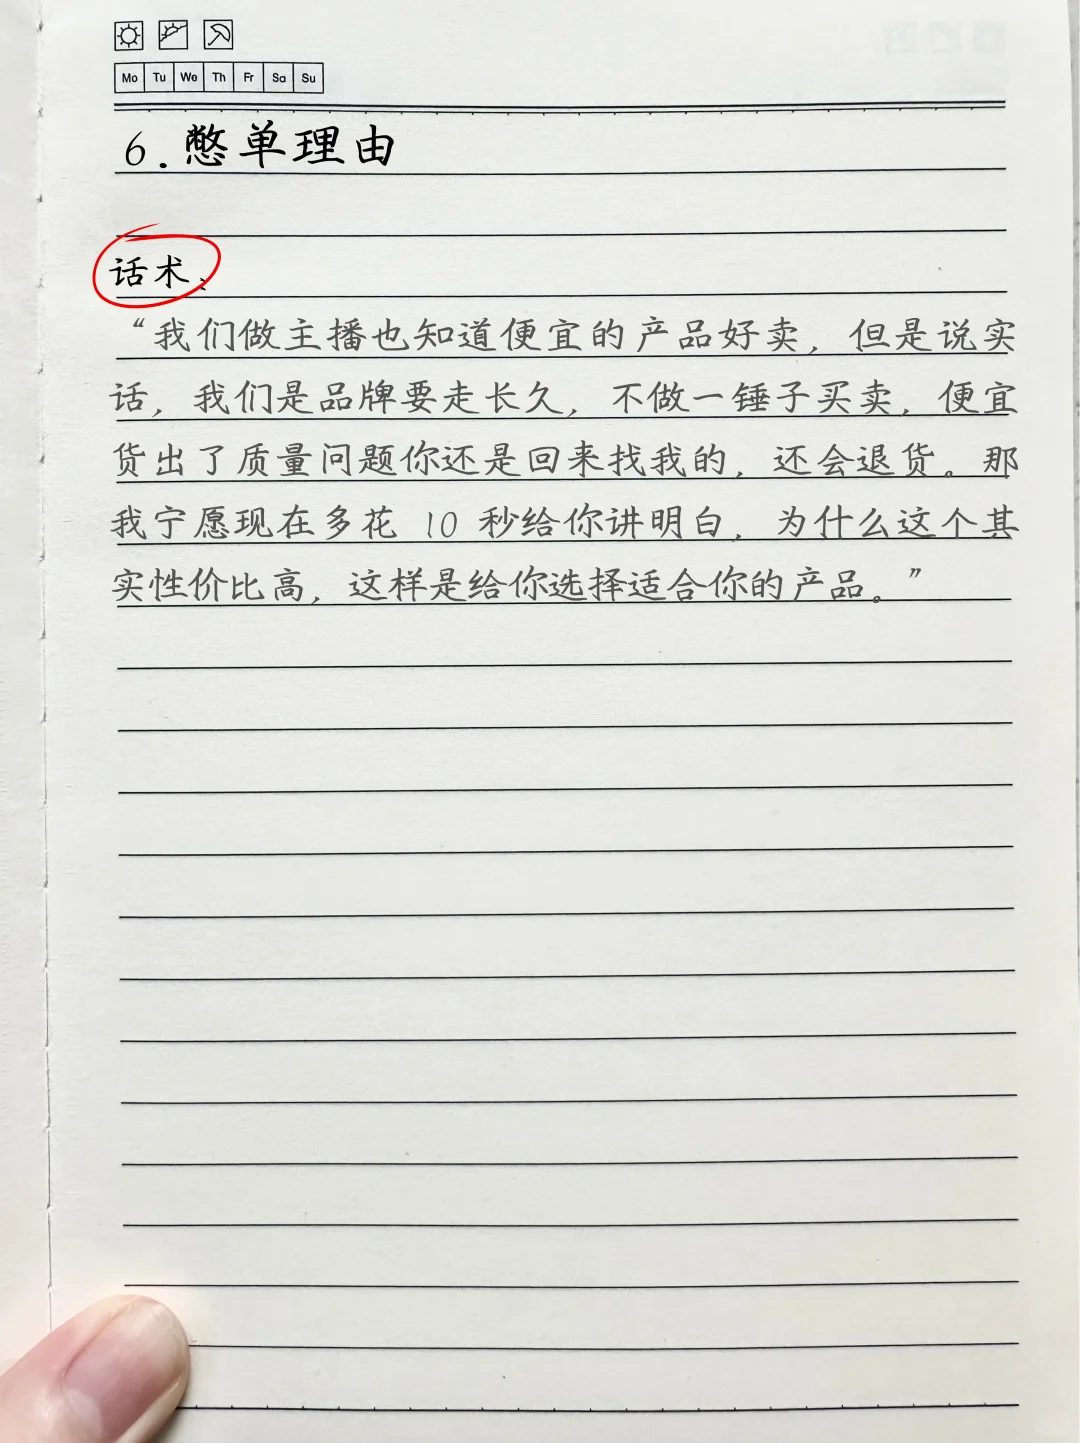 Mo Tu We Th Fr Sa Su
6.憋单理由
话术:
“我们做主播也知道便宜的产品好卖，但是说实
话，我们是品牌要走长久，不做一锤子买卖，便宜
货出了质量问题你还是回来找我的，还会退货。那
我宁愿现在多花 10 秒给你讲明白，为什么这个其
实性价比高，这样是给你选择适合你的产品。”